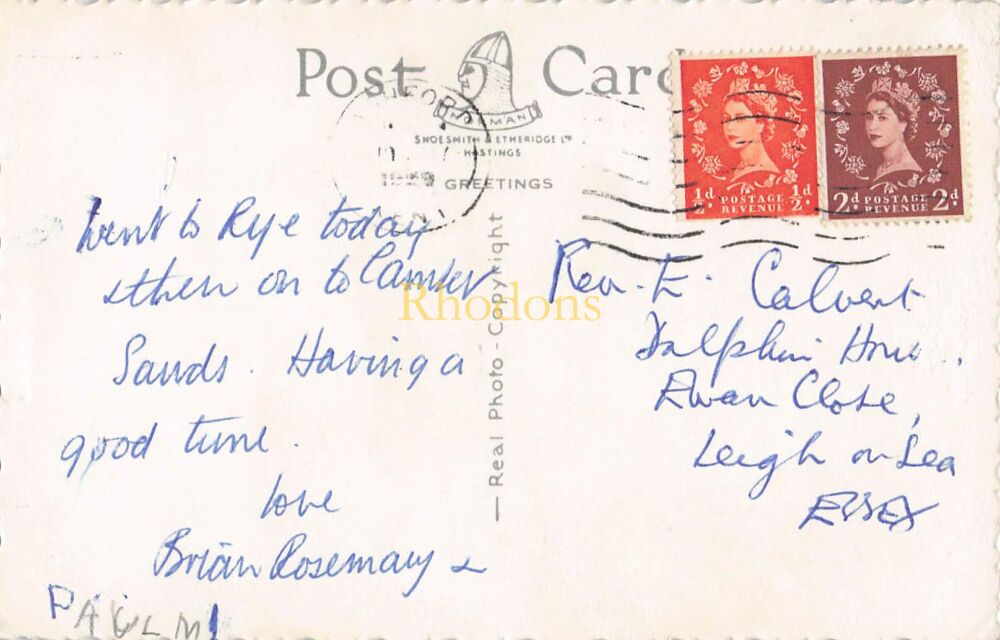 Post Card
NORMAN
SHOESMITH & ETHERIDGE LTD
HASTINGS
GREETINGS
½d ½d
POSTAGE
REVENUE
2d 2d
POSTAGE
REVENUE
went to Rye today
& then on to Camber
Sands. Having a
good time.
love
Brian Rosemary &
PAUL M
— Real Photo - Copyright
Rhodons
Rev. E. Calvert
Dalphin House.
Ewan Close,
Leigh on Sea
ESSEX